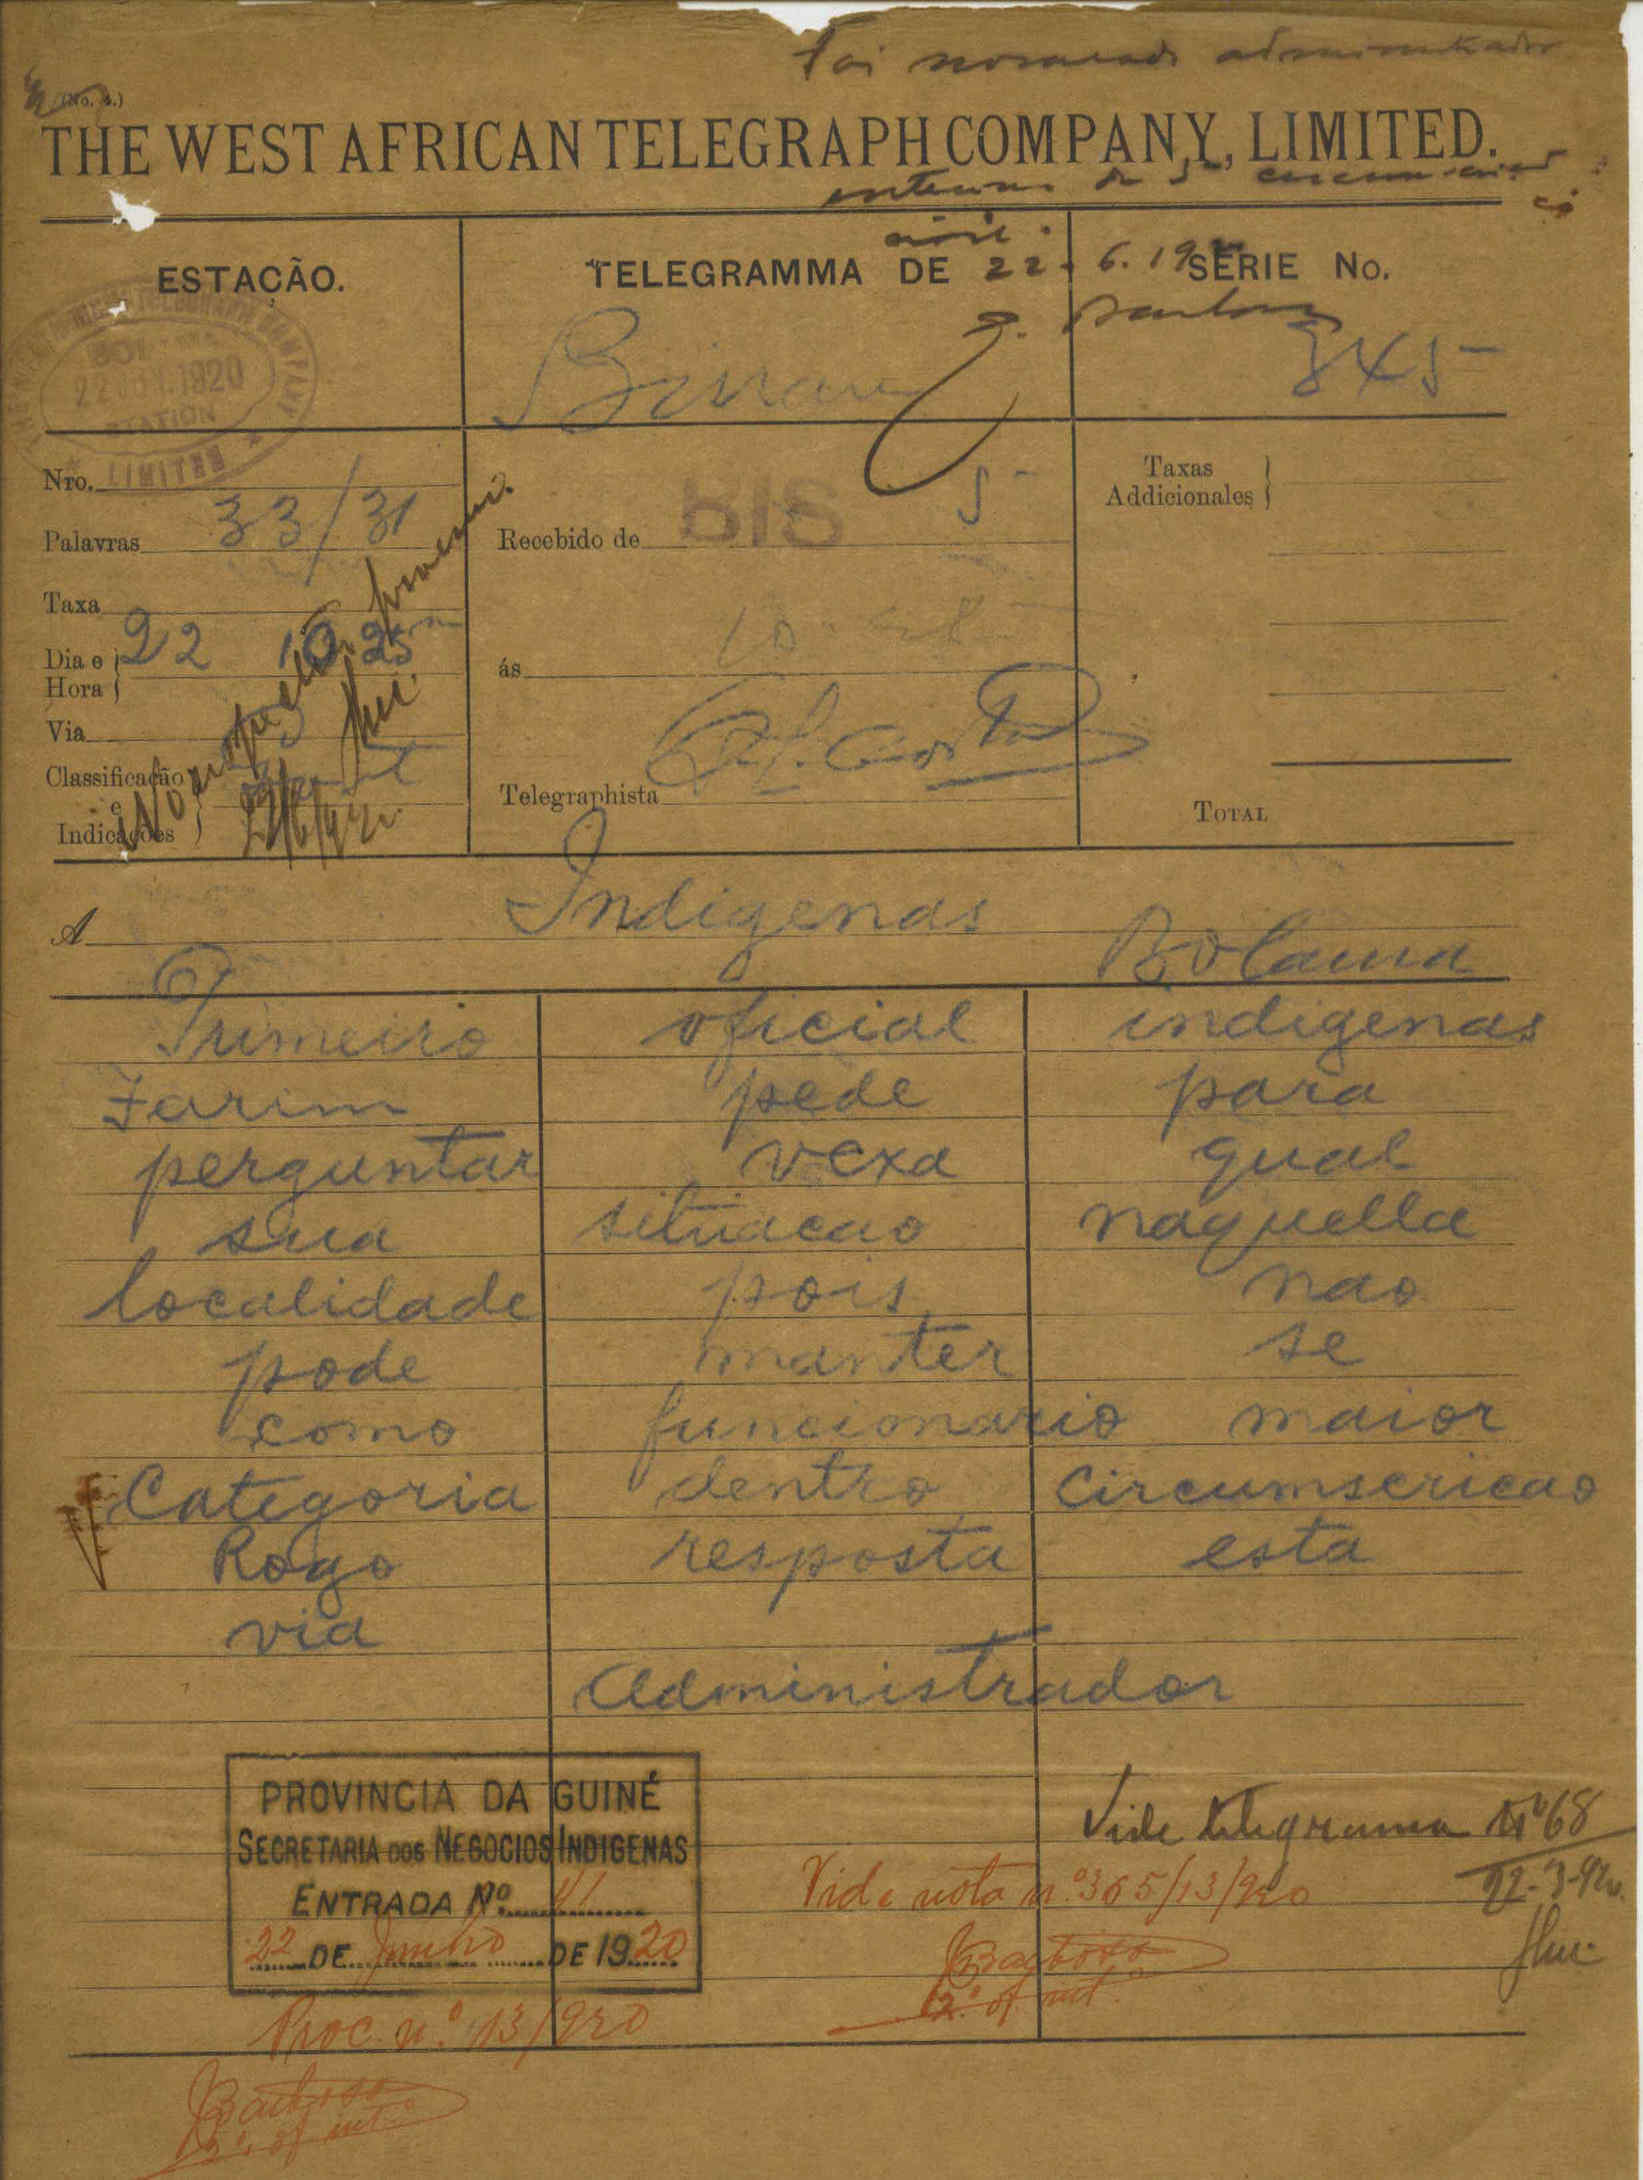 Foi nomeado administrador
(No. 4.)
THE WEST AFRICAN TELEGRAPH COMPANY, LIMITED.
interino da 5ª
civil.
22.6.19
ESTAÇÃO.
TELEGRAMMA DE
SERIE No.
Bissau
845
22 JUN.1920
STATION
LIMITED
Nro.
Palavras 33/31
Taxa
Dia e Hora 22 10 25
Via
Classificação e Indicações
Recebido de BIS 5
ás
Telegraphista
Taxas Addicionales
TOTAL
A Indigenas Bolama
Primeiro oficial indigenas
Farim pede para
perguntar vexa qual
sua situacao naquella
localidade pois nao
pode manter se
como funcionario maior
Categoria dentro Circumscricao
Rogo resposta esta
via
Administrador
PROVINCIA DA GUINÉ
SECRETARIA DOS NEGOCIOS INDIGENAS
ENTRADA Nº 41
22 DE Junho DE 1920
Vide telegrama Nº 68
Vide nota n.º 365/13/920
Barbosa
2.º of. int.º
Proc. n.º 13/920
Barbosa
2.º of. int.º